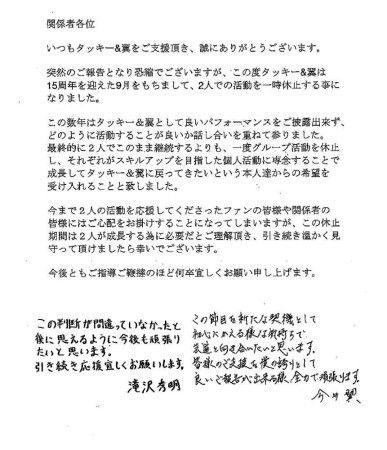 関係者各位
いつもタッキー&翼をご支援頂き、誠にありがとうございます。
突然のご報告となり恐縮でございますが、この度タッキー&翼は
15周年を迎えた9月をもちまして、2人での活動を一時休止する事に
なりました。
この数年はタッキー&翼として良いパフォーマンスをご披露出来ず、
どのように活動することが良いか話し合いを重ねて参りました。
最終的に2人でこのまま継続するよりも、一度グループ活動を休止
し、それぞれがスキルアップを目指した個人活動に専念することで
成長してタッキー&翼に戻ってきたいという本人達からの希望を
受け入れることと致しました。
今まで2人の活動を応援してくださったファンの皆様や関係者の
皆様にはご心配をお掛けすることになってしまいますが、この休止
期間は2人が成長する為に必要だとご理解頂き、引き続き温かく見
守って頂けましたら幸いでございます。
今後ともご指導ご鞭撻のほど何卒宜しくお願い申し上げます。
この判断が間違っていなかったと
後に思えるように今後も頑張り
たいと思います。
引き続き応援宜しくお願いします。
滝沢秀明
この節目を新たな契機として
初心にかえる様な気持ちで
芝居と向き合いたいと思います。
皆様のご支援を僕の誇りとして
良いご報告が出来る様、全力で頑張ります。
今井翼